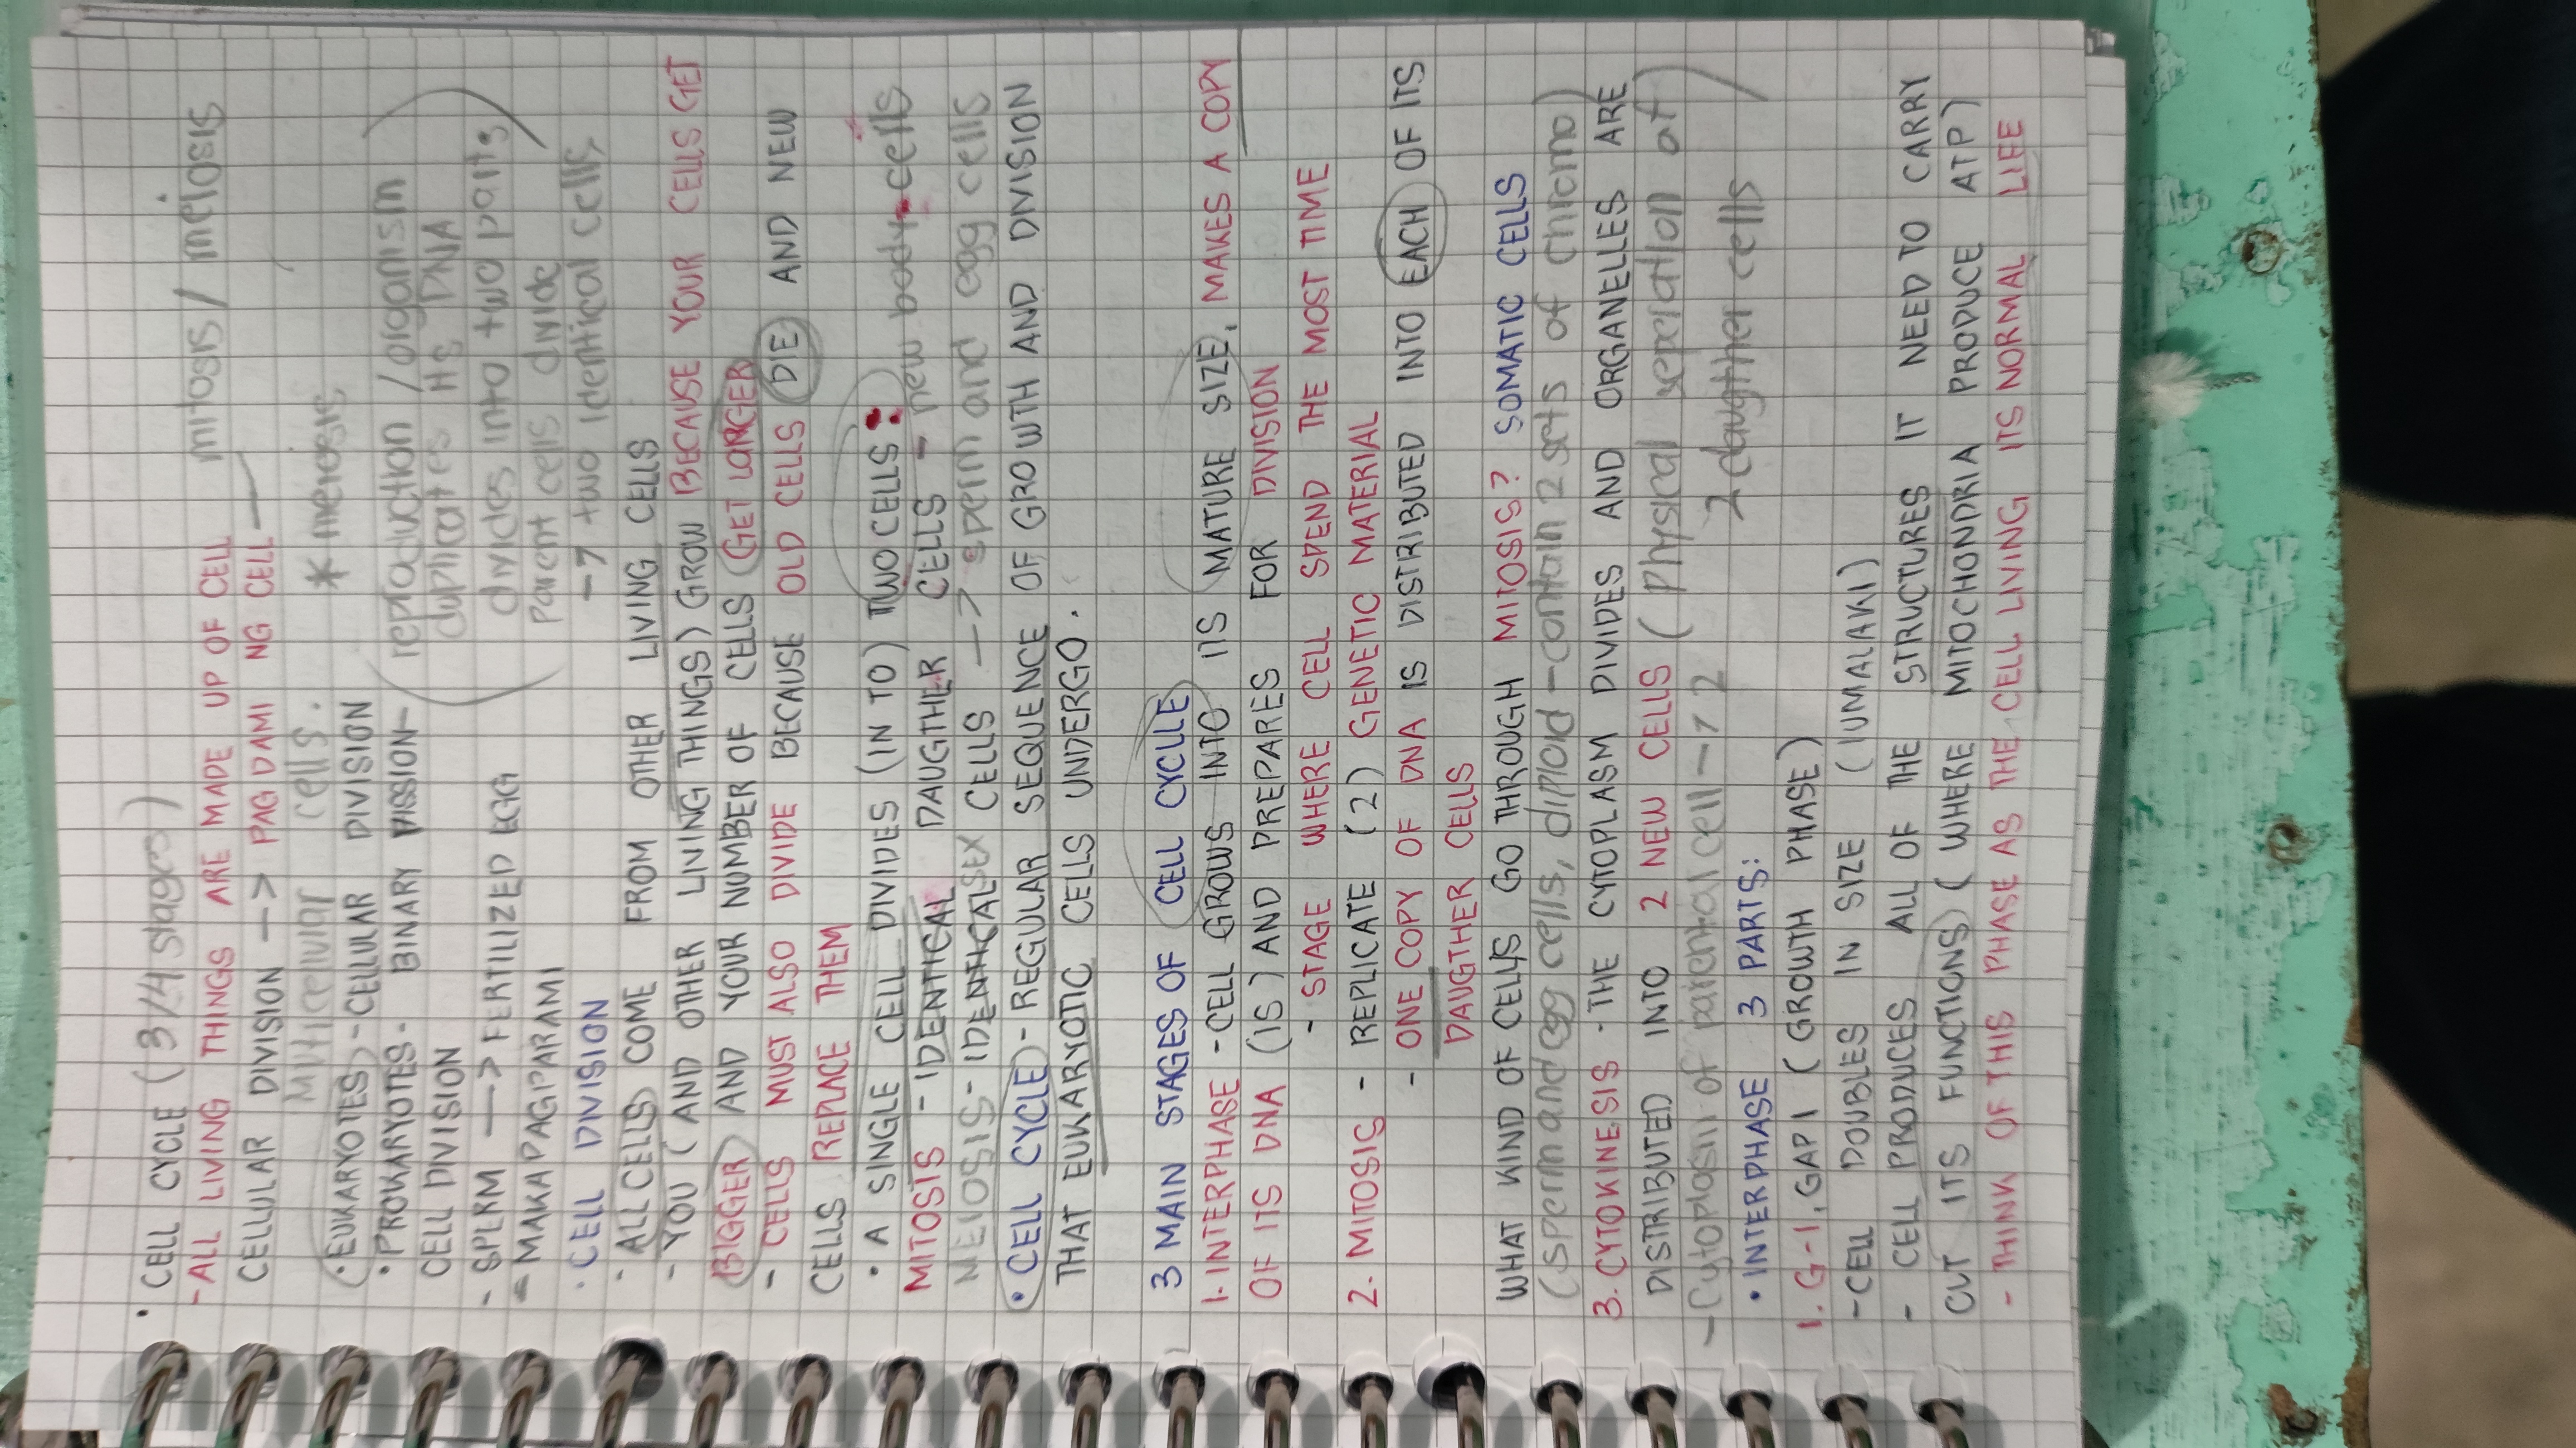 • CELL CYCLE (3/4 stages) mitosis / meiosis
- ALL LIVING THINGS ARE MADE UP OF CELL
CELLULAR DIVISION --> PAG DAMI NG CELL —
Multicellular cells. * meiosis
• EUKARYOTES - CELLULAR DIVISION
• PROKARYOTES - BINARY FISSION - (reproduction / organism
CELL DIVISION duplicates its DNA
- SPERM ---> FERTILIZED EGG divides into two parts
= MAKAPAGPARAMI parent cells divide
• CELL DIVISION --> two identical cells
- ALL CELLS COME FROM OTHER LIVING CELLS
- YOU (AND OTHER LIVING THINGS) GROW BECAUSE YOUR CELLS GET
BIGGER AND YOUR NUMBER OF CELLS (GET LARGER
- CELLS MUST ALSO DIVIDE BECAUSE OLD CELLS DIE AND NEW
CELLS REPLACE THEM
• A SINGLE CELL DIVIDES (IN TO) TWO CELLS:
MITOSIS - IDENTICAL DAUGTHER CELLS - new body cells
MEIOSIS - IDENTICAL SEX CELLS --> sperm and egg cells
• CELL CYCLE - REGULAR SEQUENCE OF GROWTH AND DIVISION
THAT EUKARYOTIC CELLS UNDERGO.
3 MAIN STAGES OF CELL CYCLLE
1. INTERPHASE - CELL GROWS INTO ITS MATURE SIZE, MAKES A COPY
OF ITS DNA (IS) AND PREPARES FOR DIVISION
- STAGE WHERE CELL SPEND THE MOST TIME
2. MITOSIC - REPLICATE (2) GENETIC MATERIAL
- ONE COPY OF DNA IS DISTRIBUTED INTO EACH OF ITS
DAUGTHER CELLS
WHAT KIND OF CELLS GO THROUGH MITOSIS? SOMATIC CELLS
(sperm and egg cells, diploid - contain 2 sets of chromo)
3. CYTOKINESIS - THE CYTOPLASM DIVIDES AND ORGANELLES ARE
DISTRIBUTED INTO 2 NEW CELLS (physical seperation of
- Cytoplasm of parental cell --> 2 2 daugther cells)
• INTERPHASE 3 PARTS:
1. G-1, GAP 1 (GROWTH PHASE)
- CELL DOUBLES IN SIZE (LUMALAKI)
- CELL PRODUCES ALL OF THE STRUCTURES IT NEED TO CARRY
OUT ITS FUNCTIONS) (WHERE MITOCHONDRIA PRODUCE ATP)
- THINK OF THIS PHASE AS THE CELL LIVING ITS NORMAL LIFE